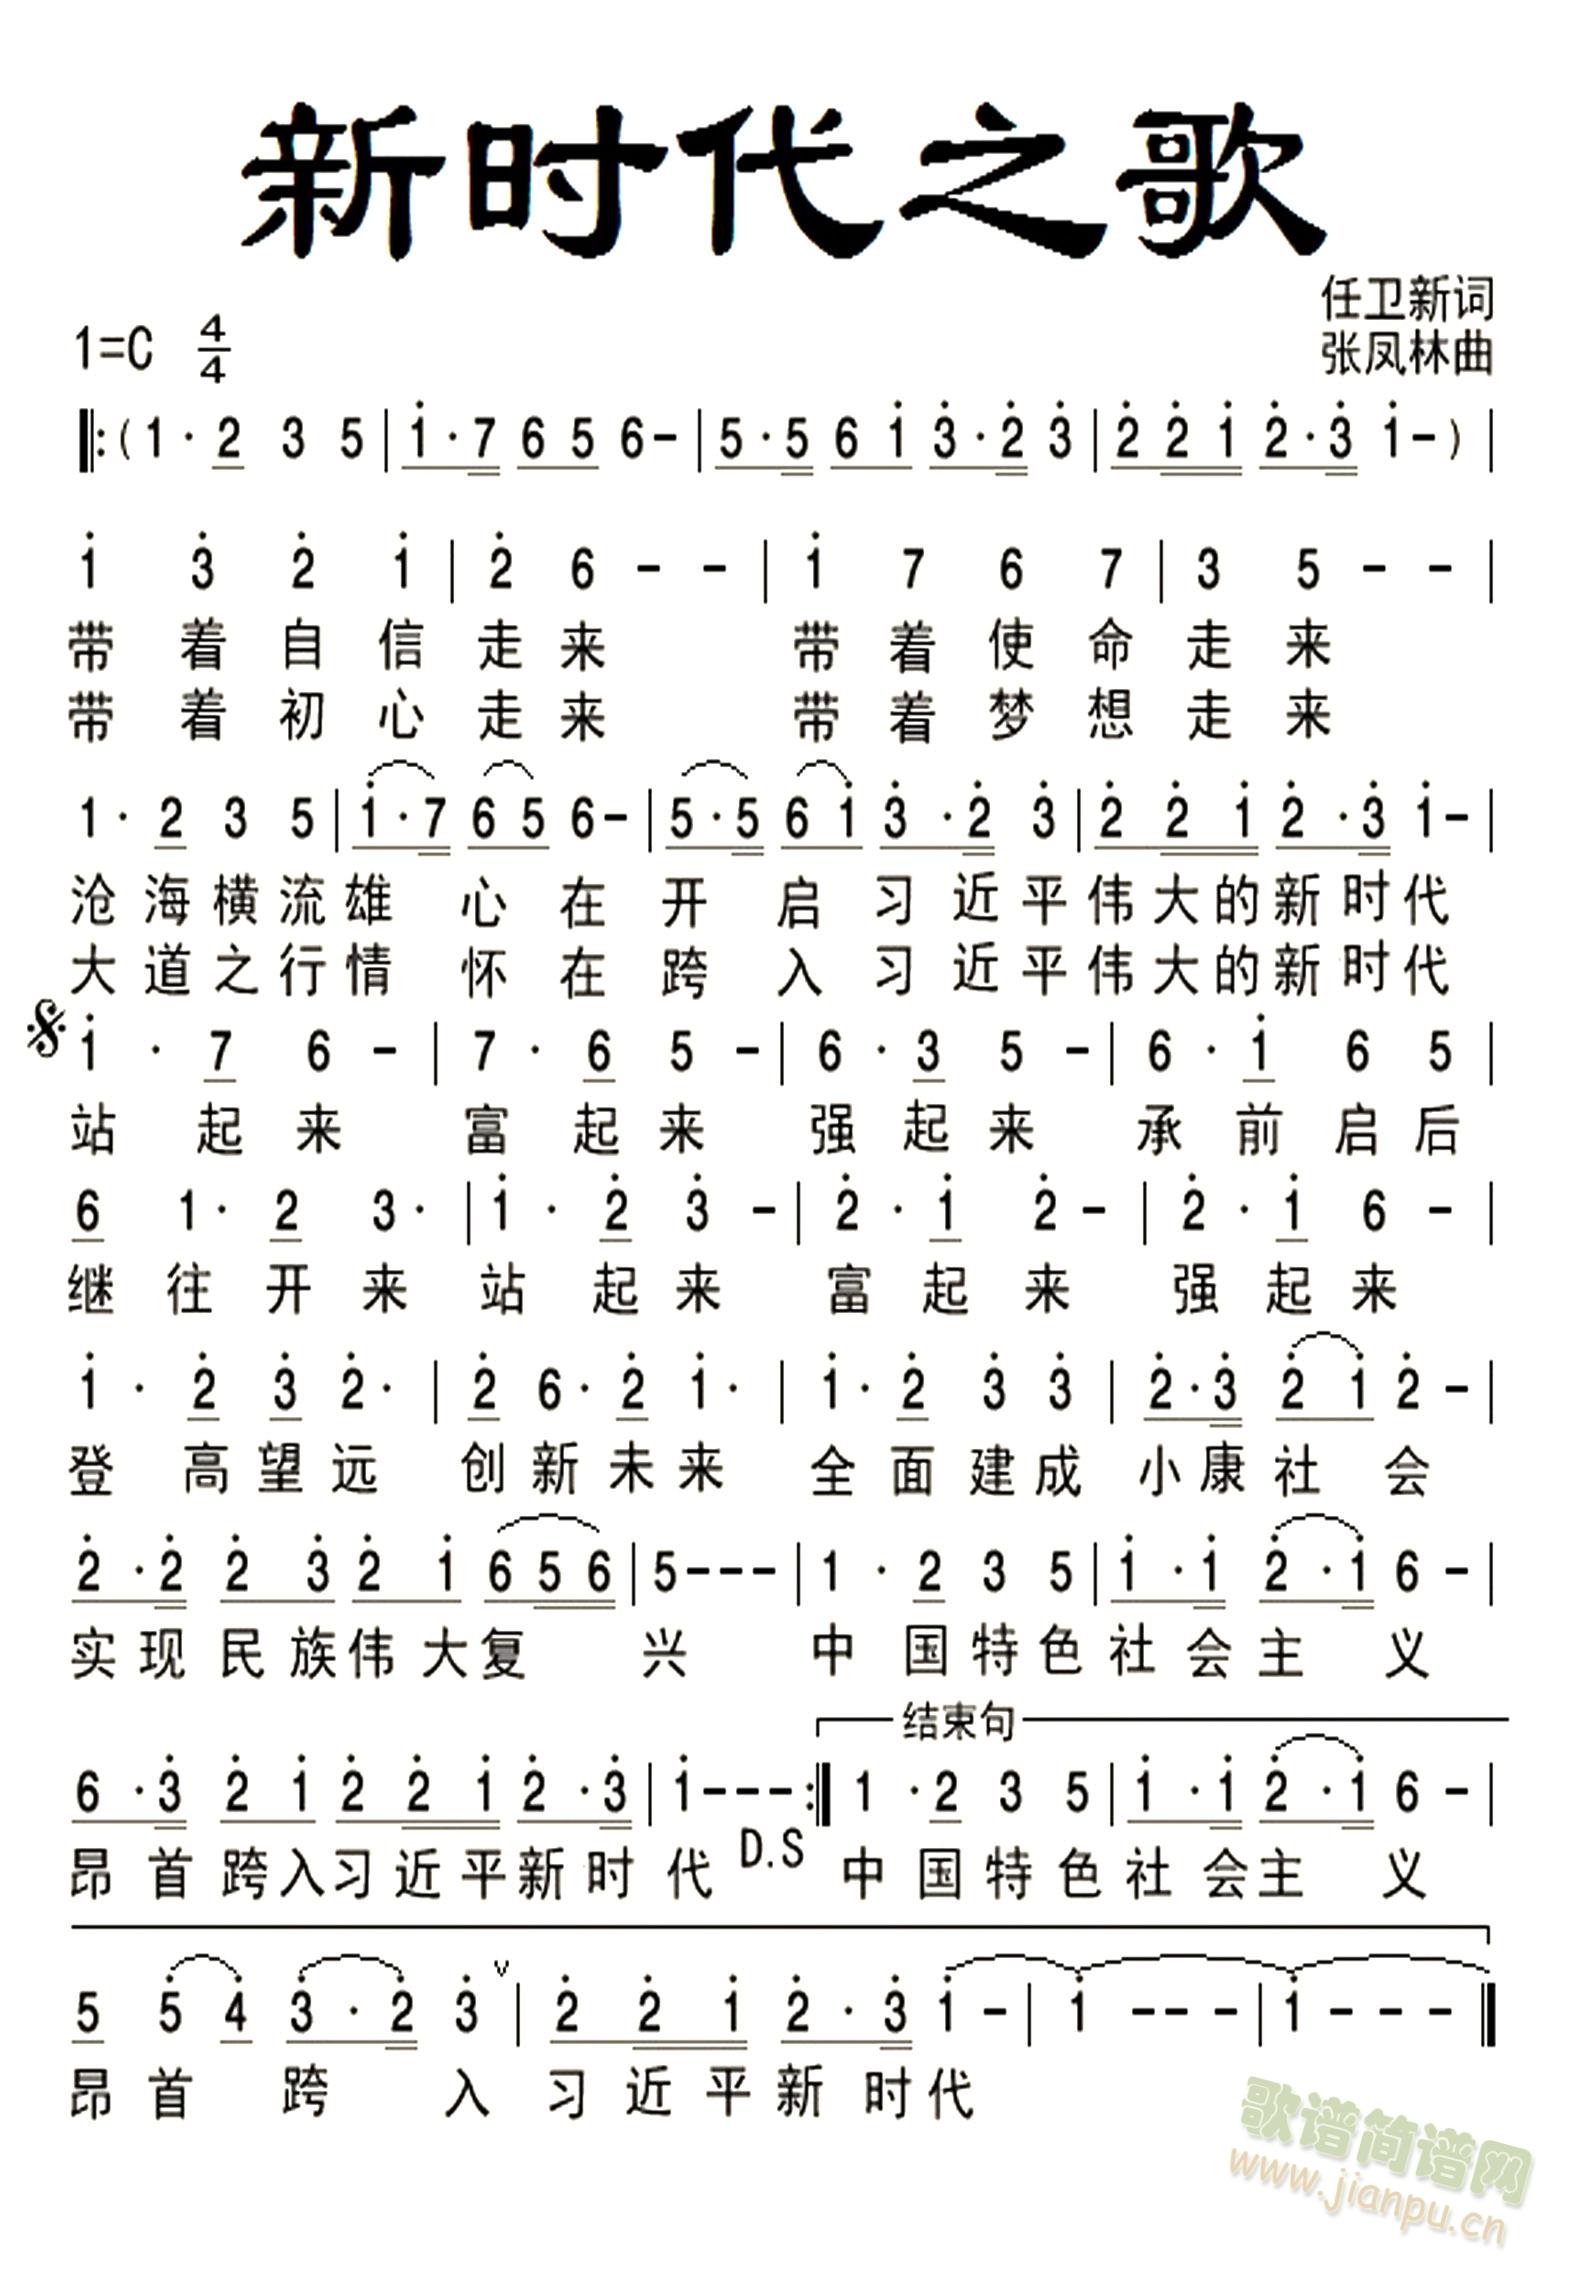 新时代之歌
任卫新词
1=C 4/4
张凤林曲
‖:( 1 · 2 3 5 | i · 7 6 5 6 – | 5 · 5 6 i 3̇ · 2̇ 3̇ | 2̇ 2̇ i 2̇ · 3̇ i – ) |
i 3̇ 2̇ i | 2̇ 6 – – | i 7 6 7 | 3 5 – – |
带着自信走来 带着使命走来
带着初心走来 带着梦想走来
1 · 2 3 5 | i · 7 6 5 6 – | 5 · 5 6 i 3̇ · 2̇ 3̇ | 2̇ 2̇ i 2̇ · 3̇ i – |
沧海横流雄 心在开启习近平伟大的新时代
大道之行情 怀在跨入习近平伟大的新时代
i · 7 6 – | 7 · 6 5 – | 6 · 3 5 – | 6 · i 6 5 |
站起来 富起来 强起来 承前启后
6 1 · 2 3 · | i · 2̇ 3̇ – | 2̇ · i 2̇ – | 2̇ · i 6 – |
继往开来 站起来 富起来 强起来
i · 2̇ 3̇ 2̇ · | 2̇ 6 · 2̇ i · | i · 2̇ 3̇ 3̇ | 2̇ · 3̇ 2̇ i 2̇ – |
登高望远 创新未来 全面建成小康社会
2̇ · 2̇ 2̇ 3̇ 2̇ i 6 5 6 | 5 – – – | 1 · 2 3 5 | i · i 2̇ · i 6 – |
实现民族伟大复 兴 中国特色社会主义
结束句
6 · 3̇ 2̇ i 2̇ 2̇ i 2̇ · 3̇ | i – – – :‖ 1 · 2 3 5 | i · i 2̇ · i 6 – |
昂首跨入习近平新时代 D.S 中国特色社会主义
5 5̇ 4̇ 3̇ · 2̇ 3̇ ∨ | 2̇ 2̇ i 2̇ · 3̇ i – | i – – – | i – – – ‖
昂首跨 入 习近平新时代
歌谱简谱网
www.jianpu.cn